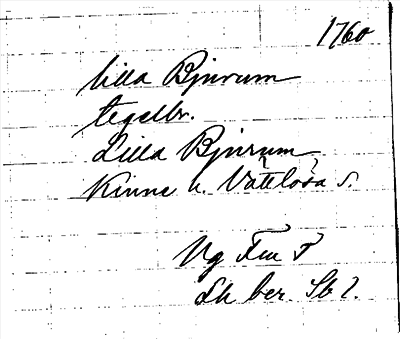 1760
Lilla Bjurum
tegelbr.
Lilla Bjurum
Kinne h. Vättlösa s.
Vg Fm
Lh ber. Sb 2.